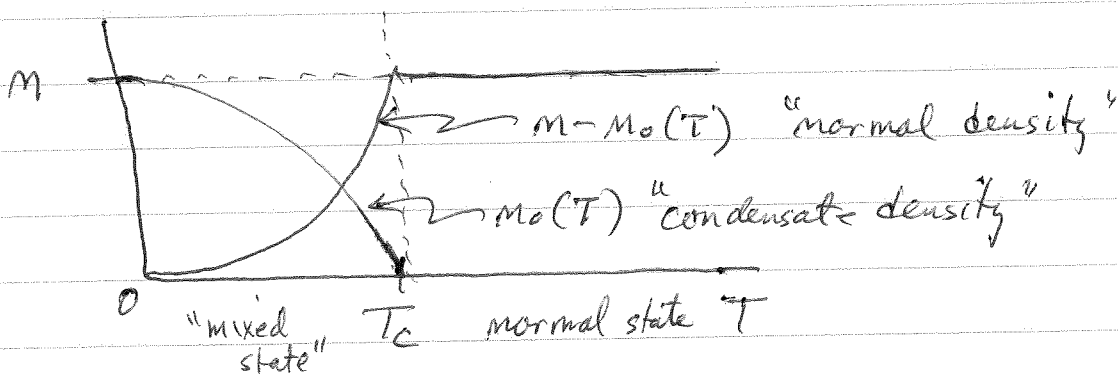 n
n - n₀(T) "normal density"
n₀(T) "condensate density"
0
"mixed state"
T_c
normal state
T